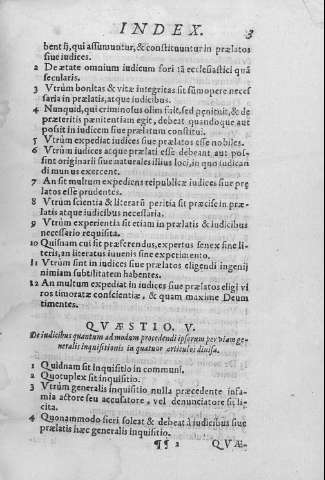 INDEX. 3
bent ij, qui assumuntur, & constituuntur in prælatos
siue iudices.
2 De ætate omnium iudicum fori tã ecclesiastici quã
secularis.
3 Vtrùm bonitas & vitæ integritas sit sũmopere neces
saria in prælatis, atque iudicibus.
4 Nunquid, qui criminosus olim fuit, sed pœnituit, & de
præteritis pœnitentiam egit, debeat quandoque aut
possit in iudicem siue prælatum constitui.
5 Vtrùm expediat iudices siue prælatos esse nobiles.
6 Vtrùm iudices atque prælati esse debeant, aut pos-
sint originarii siue naturales illius loci, in quo iudicari
di munus exercent.
7 An sit multum expediens reipublicæ iudices siue præ
latos esse prudentes.
8 Vtrùm scientia & literarũ peritia sit præcise in præ-
latis atque iudicibus necessaria.
9 Vtrùm experientia sit etiam in prælatis & iudicibus
necessario requisita.
10 Quisnam cui sit præferendus, expertus senex sine lite-
ris, an literatus iuuenis sine experimento.
11 Vtrùm sint in iudices siue prælatos eligendi ingenij
nimiam subtilitatem habentes.
12 An multum expediat in iudices siue prælatos eligi vi
ros timoratæ conscientiæ, & quam maxime Deum
timentes.
QVÆSTIO. V.
De iudicibus quantum ad modum procedendi ipsorum per viam ge-
neralis inquisitionis in quatuor articulos diuisa.
1 Quidnam sit inquisitio in communi.
2 Quotuplex sit inquisitio.
3 Vtrùm generalis inquisitio nulla præcedente infa-
mia actore seu accusatore, vel denunciatore sit li-
cita.
4 Quonammodo fieri soleat & debeat à iudicibus siue
prælatis hæc generalis inquisitio.
¶¶ 2 QVÆ-